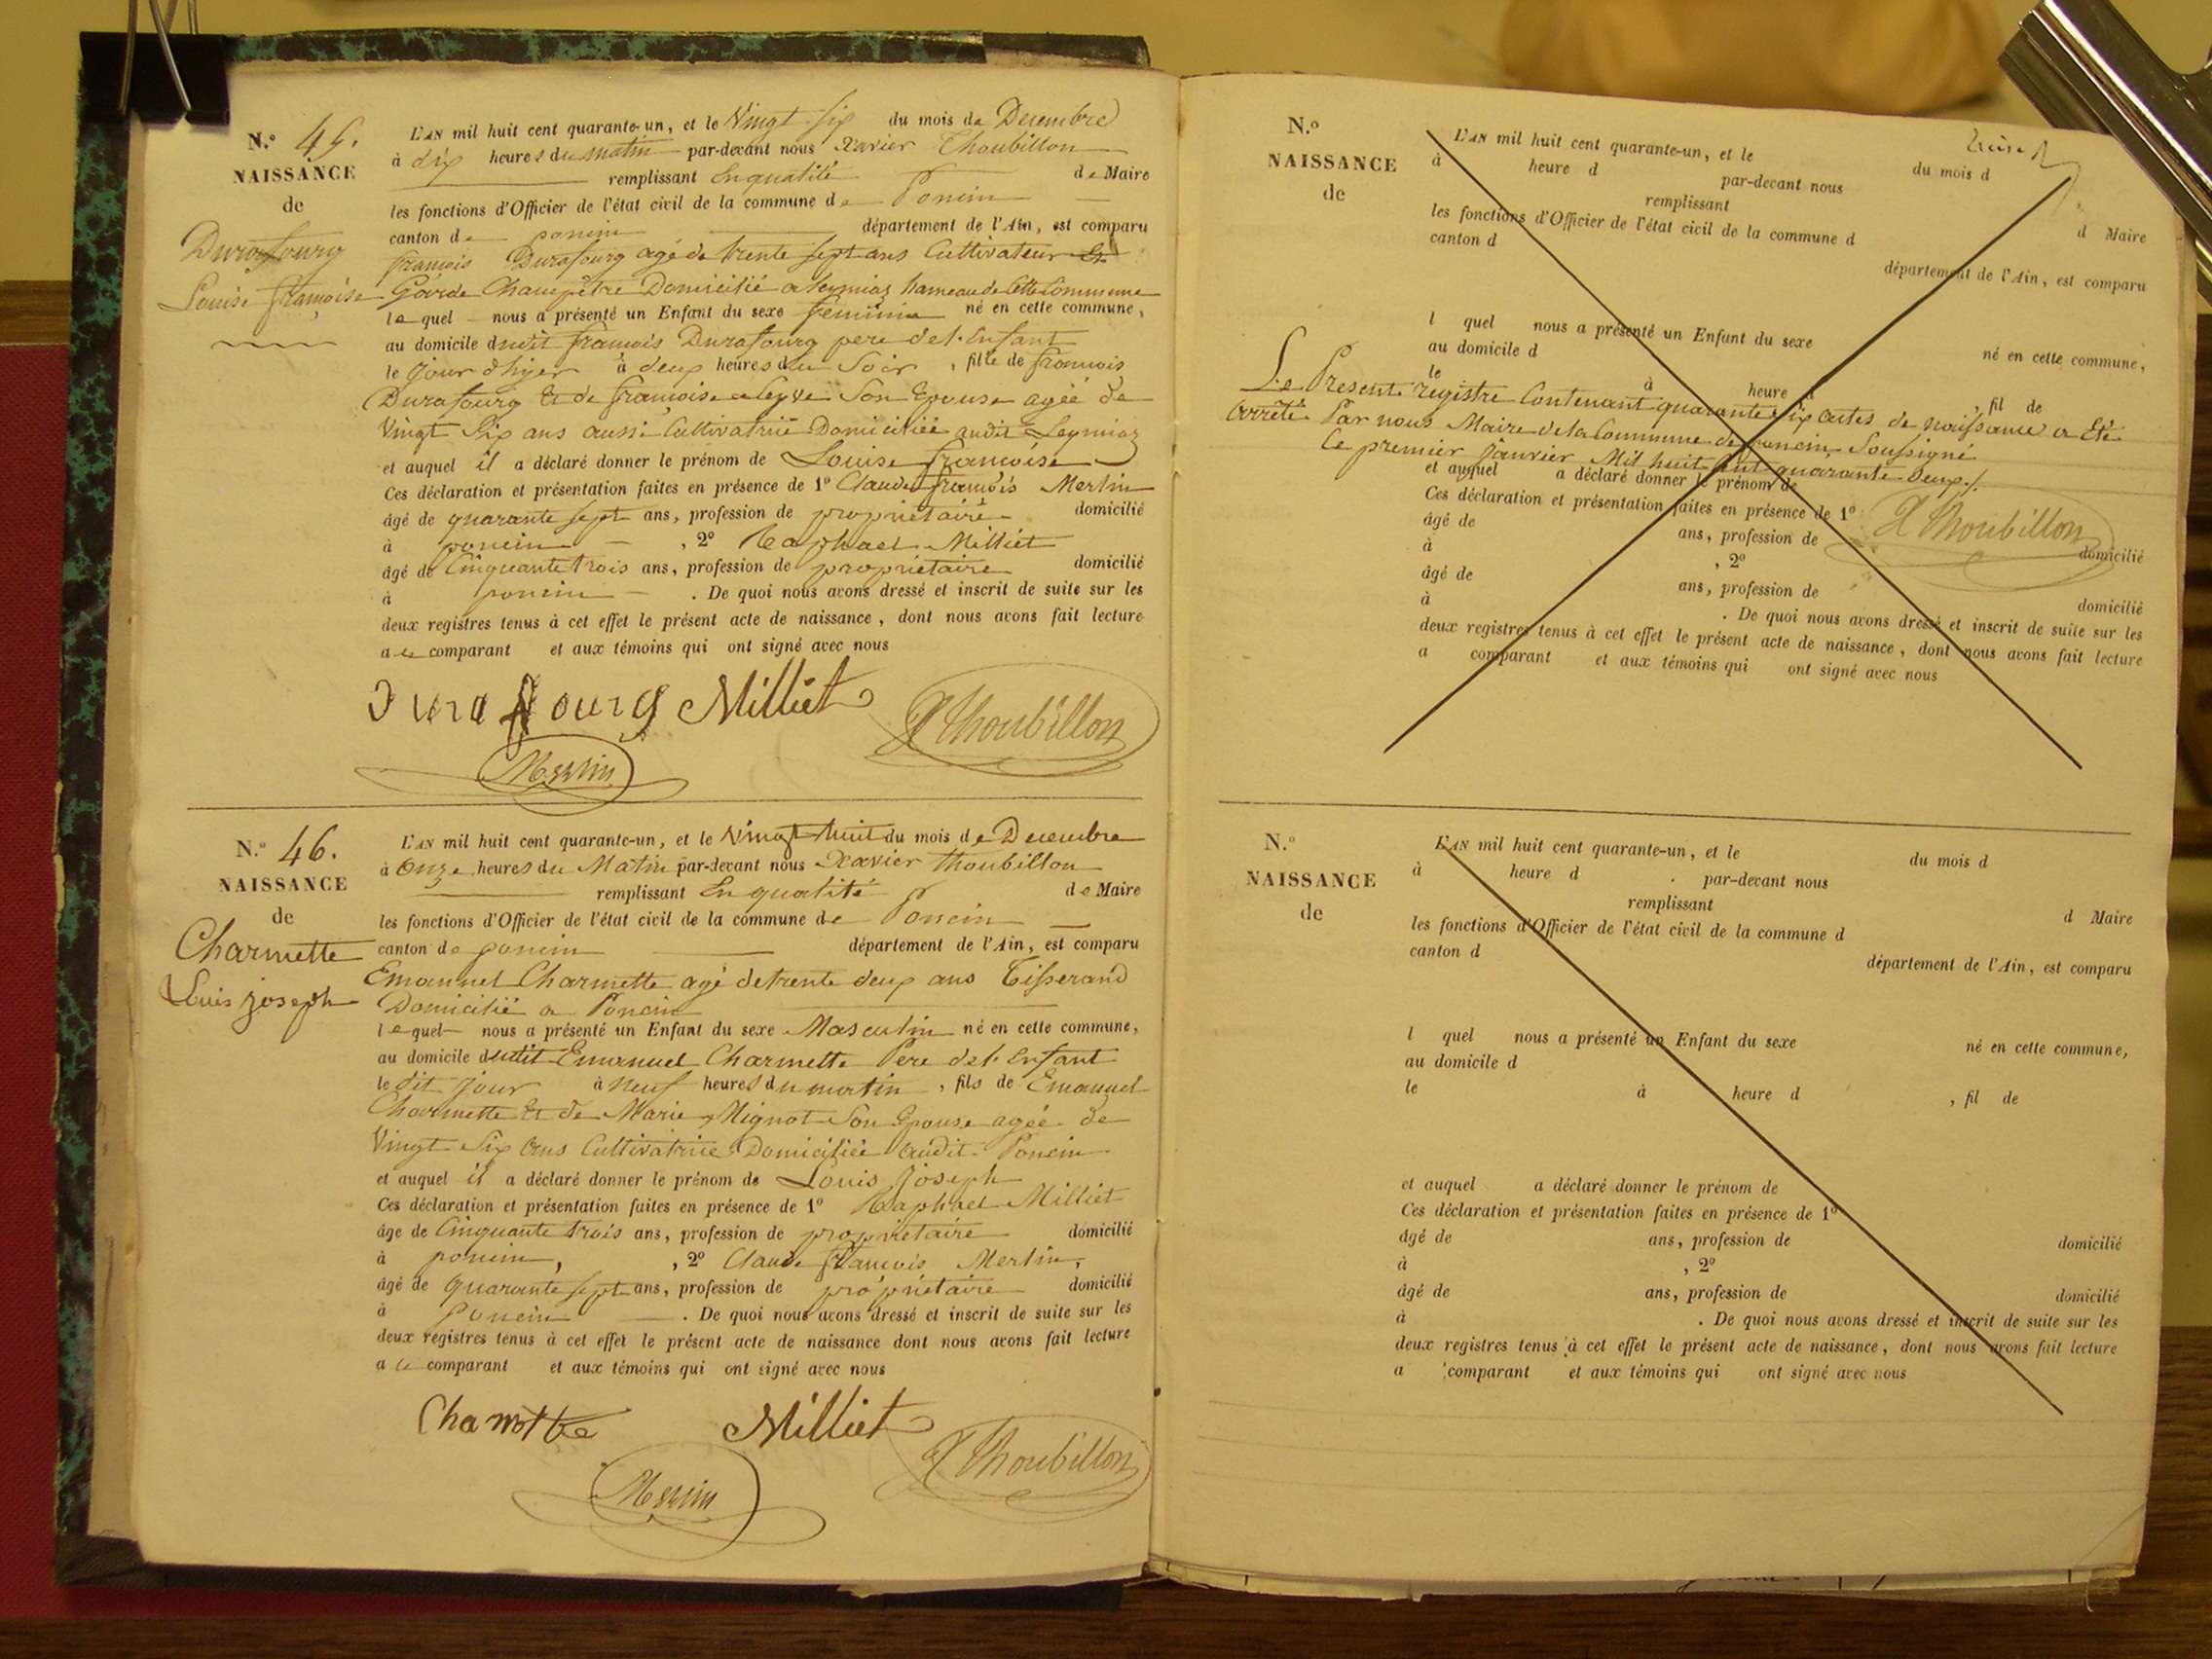 N.º 45.
NAISSANCE
de
Durafourg
Louise françoise
L'AN mil huit cent quarante-un, et le Vingt Six du mois de Decembre
à dix heures du matin par-devant nous Xavier Thoubillon
remplissant En qualité de Maire
les fonctions d'Officier de l'état civil de la commune de Poncin
canton de poncin département de l'Ain, est comparu
françois Durafourg agé de trente sept ans Cultivateur Et
Garde Champêtre Domicilié a leymiaz hameau de Cette Commune
lequel nous a présenté un Enfant du sexe feminin né en cette commune,
au domicile dudit françois Durafourg pere de l'Enfant
le jour d'hyer à deux heures du Soir, fille de françois
Durafourg Et de françoise Son Epouse agée de
Vingt Six ans aussi Cultivatrice Domiciliée audit Leymiaz
et auquel il a déclaré donner le prénom de Louise françoise
Ces déclaration et présentation faites en présence de 1º Claude françois Merlin
âgé de quarante sept ans, profession de propriétaire domicilié
à poncin, 2º Raphael Milliet
âgé de Cinquante trois ans, profession de propriétaire domicilié
à poncin. De quoi nous avons dressé et inscrit de suite sur les
deux registres tenus à cet effet le présent acte de naissance, dont nous avons fait lecture
a le comparant et aux témoins qui ont signé avec nous
Durafourg Milliet X Thoubillon
Merlin
N.º 46.
NAISSANCE
de
Charmette
Louis joseph
L'AN mil huit cent quarante-un, et le Vingt huit du mois de Decembre
à Onze heures du Matin par-devant nous Xavier Thoubillon
remplissant En qualité de Maire
les fonctions d'Officier de l'état civil de la commune de Poncin
canton de poncin département de l'Ain, est comparu
Emanuel Charmette agé de trente deux ans Tisserand
Domicilié a Poncin
lequel nous a présenté un Enfant du sexe Masculin né en cette commune,
au domicile dudit Emanuel Charmette Pere de l'Enfant
le dit jour à neuf heures du matin, fils de Emanuel
Charmette Et de Marie Mignot Son Epouse agée de
Vingt Six ans Cultivatrice Domiciliée audit Poncin
et auquel il a déclaré donner le prénom de Louis joseph
Ces déclaration et présentation faites en présence de 1º Raphael Milliet
âgé de Cinquante trois ans, profession de propriétaire domicilié
à poncin, , 2º Claude françois Merlin,
âgé de quarante sept ans, profession de propriétaire domicilié
à Poncin. De quoi nous avons dressé et inscrit de suite sur les
deux registres tenus à cet effet le présent acte de naissance dont nous avons fait lecture
a le comparant et aux témoins qui ont signé avec nous
Milliet
X Thoubillon
Merlin
N.º
NAISSANCE
de
L'AN mil huit cent quarante-un, et le du mois d
à heure d par-devant nous
remplissant d Maire
les fonctions d'Officier de l'état civil de la commune d
canton d département de l'Ain, est comparu
l quel nous a présenté un Enfant du sexe né en cette commune,
au domicile d
le à heure d, fil de
Le Present registre Contenant quarante Six actes de naissance a Eté
arrêté Par nous Maire de la Commune de poncin, Soussigné
Le premier janvier Mil huit Cent quarante Deux./.
et auquel a déclaré donner le prénom de
Ces déclaration et présentation faites en présence de 1º
X Thoubillon
âgé de ans, profession de domicilié
à , 2º
âgé de ans, profession de domicilié
à . De quoi nous avons dressé et inscrit de suite sur les
deux registres tenus à cet effet le présent acte de naissance, dont nous avons fait lecture
a comparant et aux témoins qui ont signé avec nous
N.º
NAISSANCE
de
L'AN mil huit cent quarante-un, et le du mois d
à heure d par-devant nous
remplissant d Maire
les fonctions d'Officier de l'état civil de la commune d
canton d département de l'Ain, est comparu
l quel nous a présenté un Enfant du sexe né en cette commune,
au domicile d
le à heure d , fil de
et auquel a déclaré donner le prénom de
Ces déclaration et présentation faites en présence de 1º
âgé de ans, profession de domicilié
à , 2º
âgé de ans, profession de domicilié
à . De quoi nous avons dressé et inscrit de suite sur les
deux registres tenus à cet effet le présent acte de naissance, dont nous avons fait lecture
a comparant et aux témoins qui ont signé avec nous